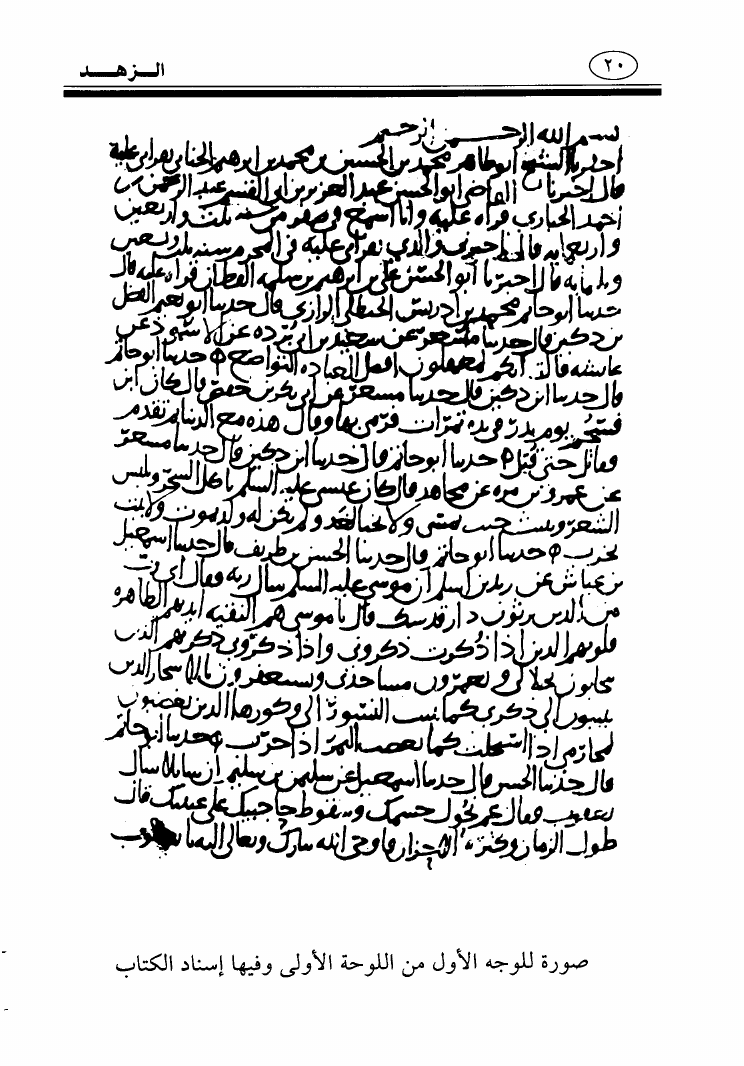 ٢٠ الـزهـد
بسم الله الرحمن الرحيم
اخبرنا الشيخ ابو طاهر محمد بن الحسين بن محمد بن ابرهيم الحنائي بقراتي عليه
قال اخبرنا القاضي ابو الحسن عبد العزيز بن ابي القسم عبد الرحمن بن
احمد قراه عليه وانا اسمع في صفر من سنه ثلث واربعين
واربعمايه قال اخبرني والدي بقراتي عليه في المحرم سنه وتسعين
وثلثمايه قال اخبرنا ابو الحسن علي بن ابرهيم بن سلمه القطان قراه عليه قال
حدثنا ابو حاتم محمد بن ادريس الحنظلي الرازي قال حدثنا ابو نعيم الفضل
بن دكين قال حدثنا مسعر عن سعيد بن ابي برده عن الاسود عن
عايشه قالت انكم لتغفلون افضل العباده التواضع حدثنا ابو حاتم
قال حدثنا ابن دكين قال حدثنا مسعر عن ابي بكر بن حفص قال كان ابن
يوم بدر في يده تمرات فرمى بها وقال هذه مع الدنيا ثم تقدم
وقاتل حتى قتل حدثنا ابو حاتم قال حدثنا ابن دكين قال حدثنا مسعر
عن عمرو بن مره عن مجاهد قال كان عيسى عليه السلم ياكل الشجر ويلبس
الشعر ويبيت حيث يمسي ولا يخبا لغد ولم يكن له ولد يموت ولا بيت
يخرب حدثنا ابو حاتم قال حدثنا الحسن بن طريف قال حدثنا اسمعيل
بن عياش عن زيد بن اسلم ان موسى عليه السلم سال ربه وقال اي رب
من الذين يرثون دار قدسك قال يا موسى هم النقيه ايديهم الطاهره
قلوبهم الذين اذا ذكرت ذكروني واذا ذكروني ذكرتهم الذين
يتحابون لجلالي ويعمرون مساجدي ويستغفرون بالاسحار الذين
ينيبون الى ذكري كما تنيب النسور الى وكورها الذين يغضبون
لمحارمي اذا استحلت كما يغضب النمر اذا حرب حدثنا ابو حاتم
قال حدثنا الحسن قال حدثنا اسمعيل عن سليمن بن سليم ان سايلا سال
يعقوب فقال عم نحول جسمك وسقوط حاجبيك على عينيك قال
طول الزمان وكثرة الاحزان فاوحى الله تبارك وتعالى اليه يا يعقوب
صورة للوجه الأول من اللوحة الأولى وفيها إسناد الكتاب